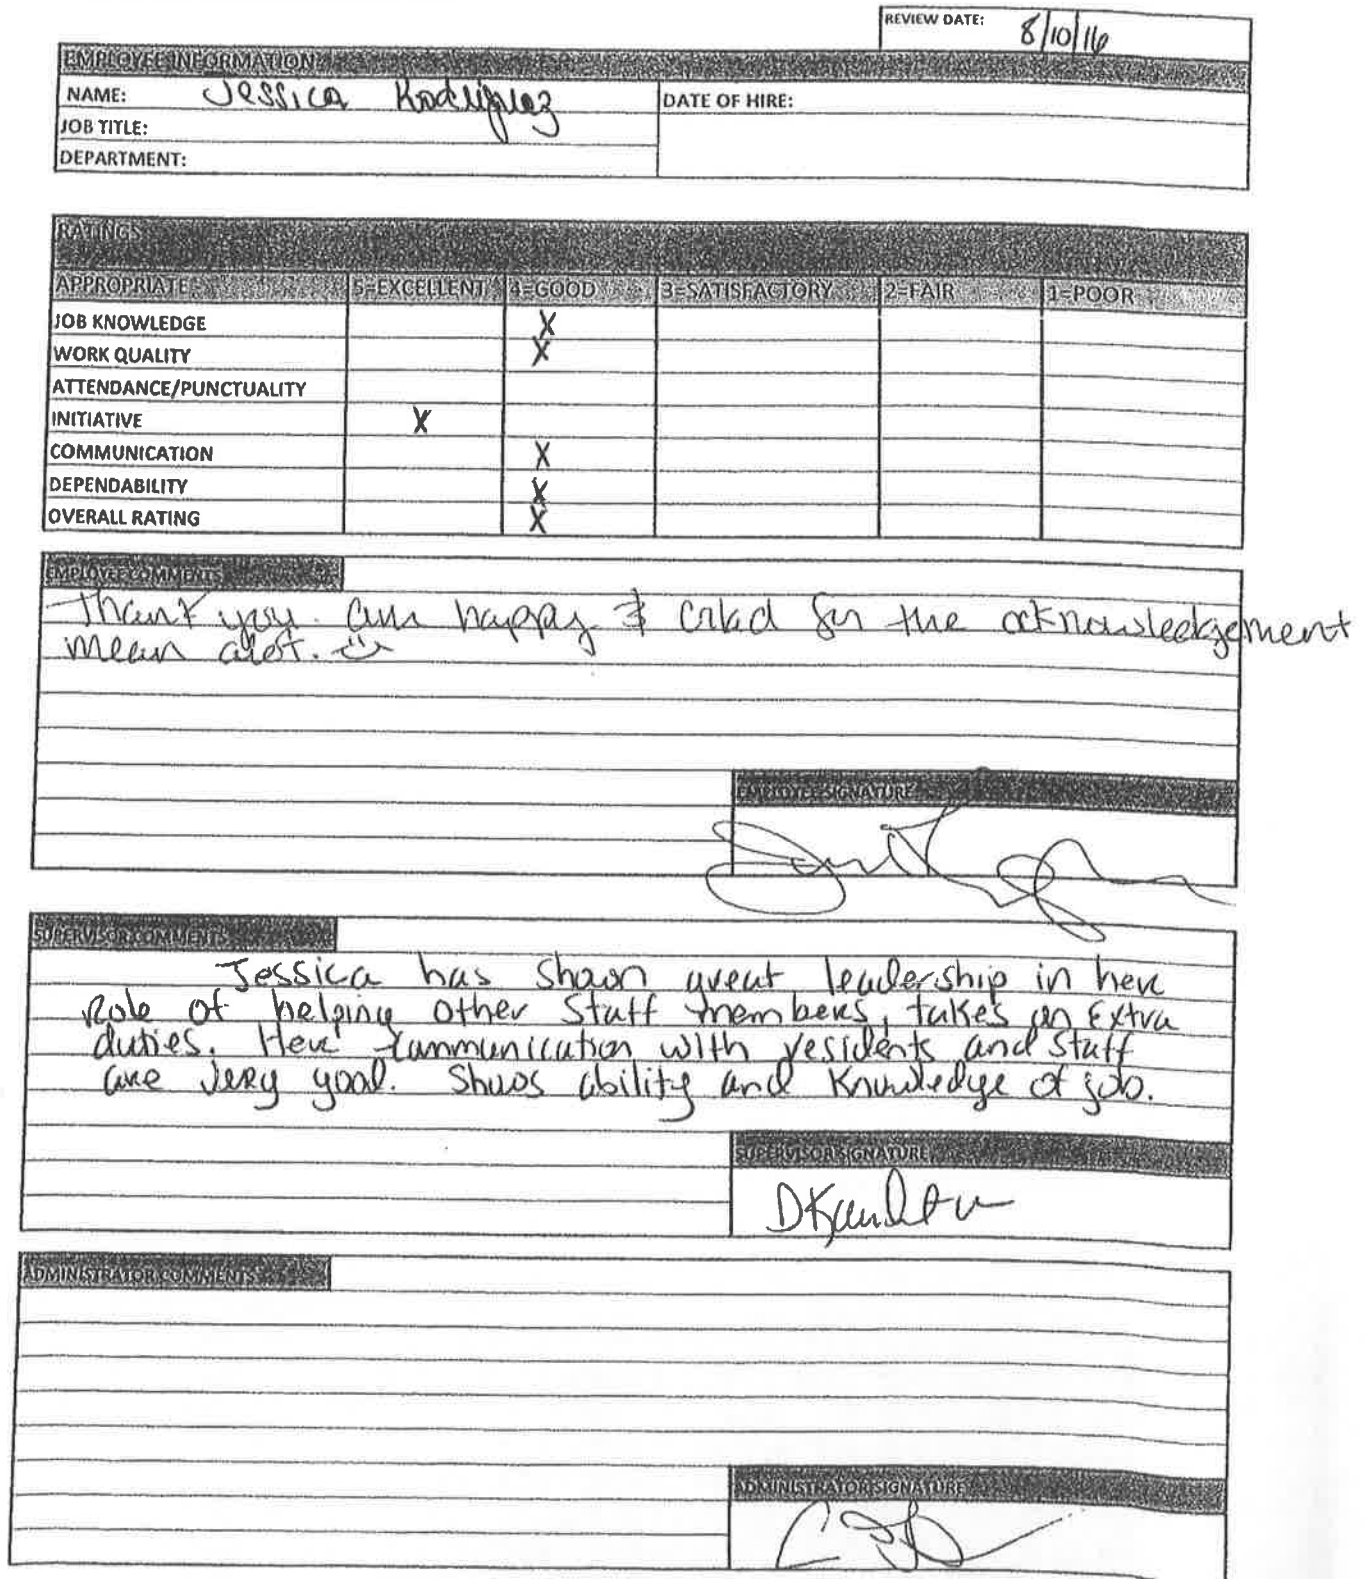 REVIEW DATE: 8/10/16
EMPLOYEE INFORMATION
NAME: Jessica Rodriguez
DATE OF HIRE:
JOB TITLE:
DEPARTMENT:
RATINGS
APPROPRIATE 5=EXCELLENT 4=GOOD 3=SATISFACTORY 2=FAIR 1=POOR
JOB KNOWLEDGE X
WORK QUALITY X
ATTENDANCE/PUNCTUALITY
INITIATIVE X
COMMUNICATION X
DEPENDABILITY X
OVERALL RATING X
EMPLOYEE COMMENTS
Thank you. am happy & for the acknowledgement
mean alot.
EMPLOYEE SIGNATURE
SUPERVISOR COMMENTS
Jessica has shown great leadership in her
Role of helping other Staff members, takes on Extra
duties. Her Communication with residents and staff
are very good. Shows ability and Knowledge of job.
SUPERVISOR SIGNATURE
ADMINISTRATOR COMMENTS
ADMINISTRATOR SIGNATURE